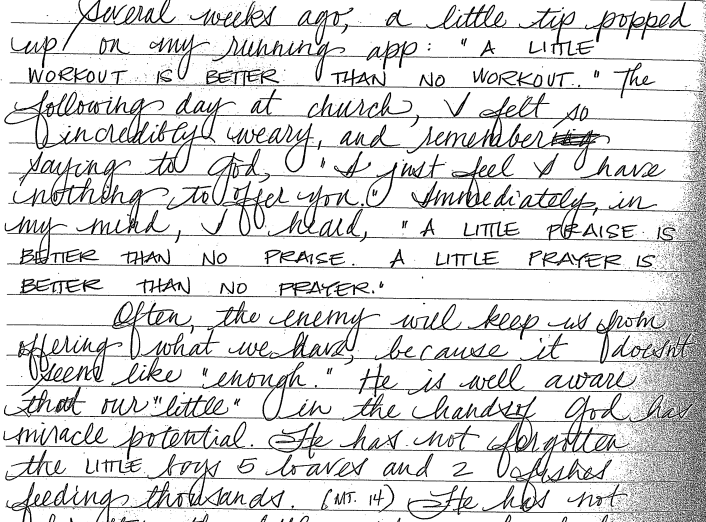 Several weeks ago, a little tip popped
up on my running app: "A LITTLE
WORKOUT IS BETTER THAN NO WORKOUT." The
following day at church, I felt so
incredibly weary, and remember
saying to God, "I just feel I have
nothing to offer you." Immediately, in
my mind, I heard, "A LITTLE PRAISE IS
BETTER THAN NO PRAISE. A LITTLE PRAYER IS
BETTER THAN NO PRAYER."
Often, the enemy will keep us from
offering what we have, because it doesn't
seem like "enough." He is well aware
that our "little" in the hands of God has
miracle potential. He has not forgotten
the LITTLE boys 5 loaves and 2 fishes
feeding thousands. (MT. 14) He has not